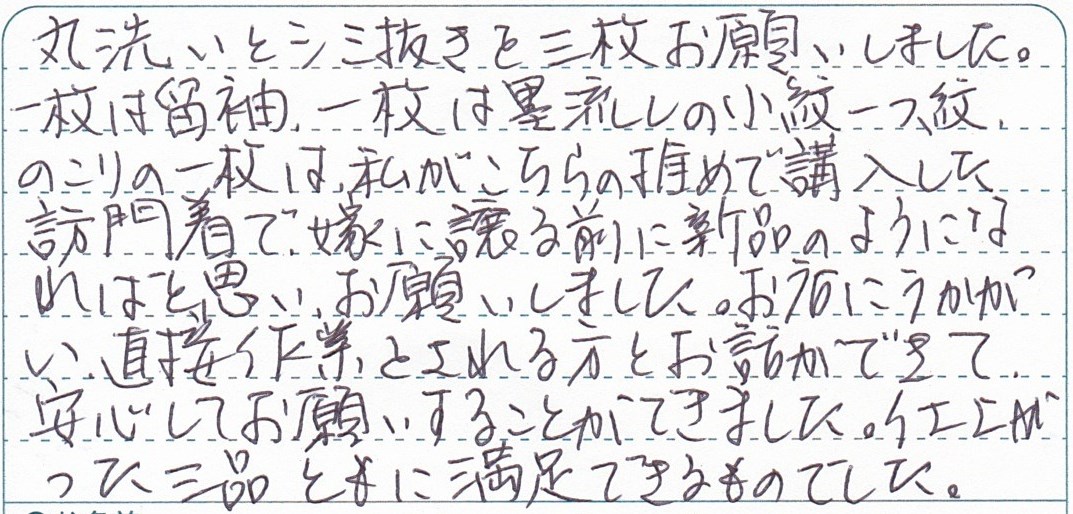 丸洗いとシミ抜きを三枚お願いしました。
一枚は留袖、一枚は墨流しの小紋一つ紋、
のこりの一枚は、私がこちらの推めで講入した
訪門着で、嫁に譲る前に新品のようにな
ればと思い、お願いしました。お店にうかが
い、直接作業とされる方とお話ができて、
安心してお願いすることができました。仕上が
った三品ともに満足できるものでした。